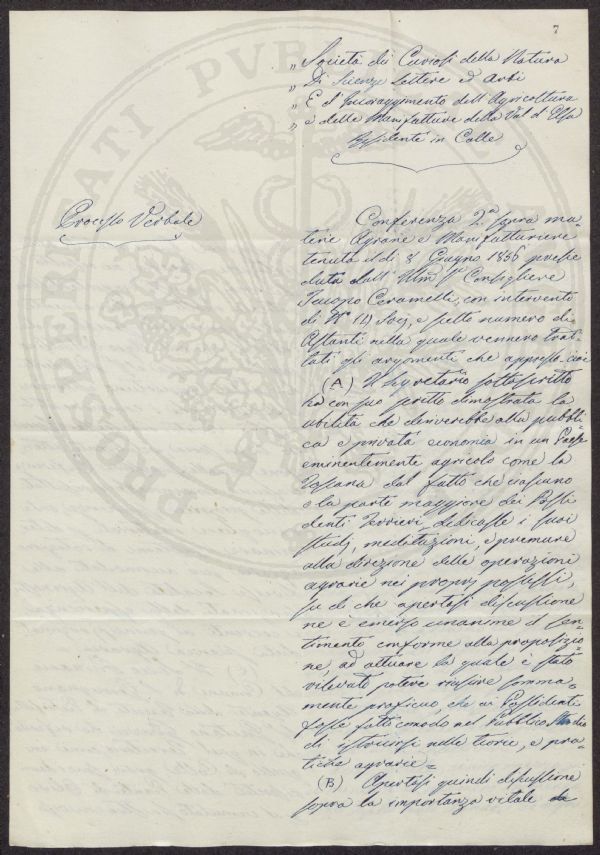 7
„ Società dei Curiosi della Natura
„ Di Scienze Lettere ed Arti
„ E d'Incoraggimento dell'Agricoltura
„ e delle Manifatture della Val d'Elsa
Residente in Colle
Processo Verbale
Conferenza 2.ª sopra ma-
terie Agrarie e Manifatturiere
tenuta il dì 8 Giugno 1856 presie
duta dall' Illmo Sr Consigliere
Jacopo Ceramelli, con intervento
di No 14 Socj, e scelto numero di
Astanti nella quale vennero trat-
tati gli argomenti che appresso. cioè
(A) Il Segretario sottoscritto
ha con suo scritto dimostrata la
utilità che deriverebbe alla pubbli-
ca e privata economia in un Paese
eminentemente agricolo come la
Toscana dal fatto che ciascuno
o la parte maggiore dei Possi
denti Terrieri dedicasse i suoi
studj, meditazioni, e premure
alla direzione delle operazioni
agrarie nei proprj possessi,
su di che apertasi discussione
ne è emerso unanime il sen-
timento conforme alla proposizio
ne, ad attuare la quale è stato
rilevato potere riuscire somma-
mente proficuo, che ai Possidenti
fosse fatto comodo nel Pubblico Studio
di istruirsi nelle teorie, e pra-
tiche agrarie=
(B) Apertasi quindi discussione
sopra la importanza vitale da
PROSPERITATI PVBLICAE